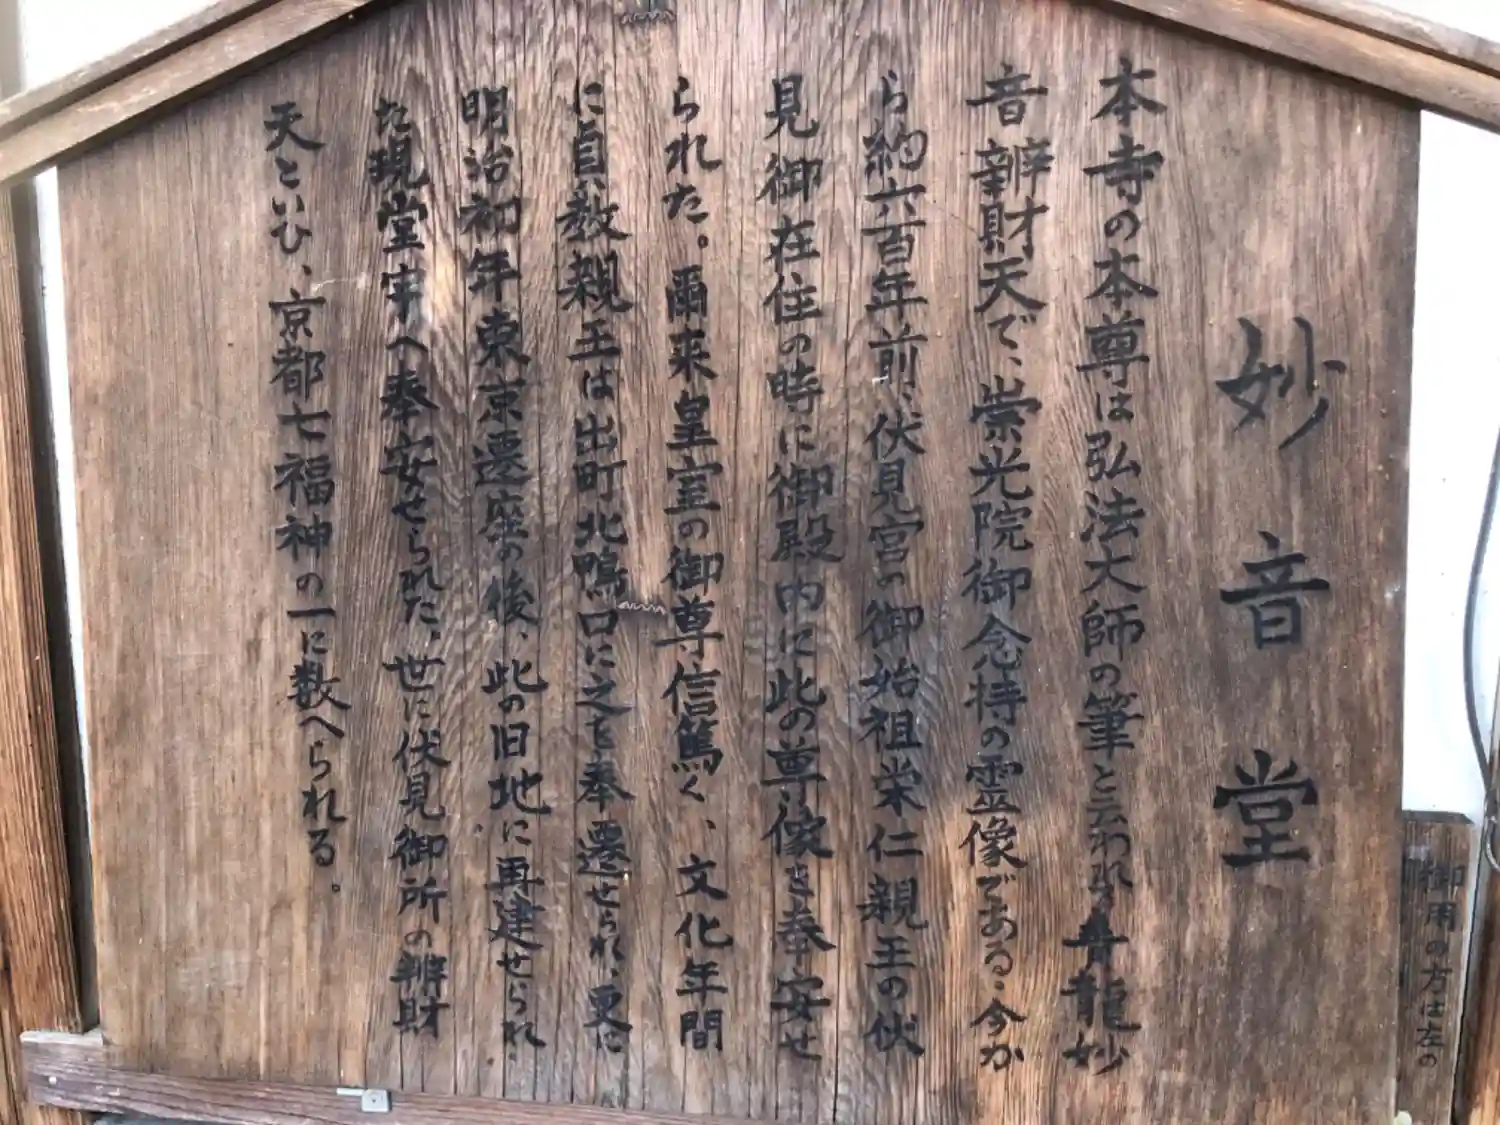 妙音堂
本寺の本尊は弘法大師の筆と云われる青龍妙
音辨財天で、崇光院御念持の霊像である。今か
ら約六百年前、伏見宮の御始祖栄仁親王の伏
見御在住の時に御殿内に此の尊像を奉安せ
られた。爾来皇室の御尊信篤く、文化年間
に貞敬親王は出町北鴨口に之を奉遷せられ、更に
明治初年東京遷座の後、此の旧地に再建せられ
た現堂宇へ奉安せられた、世に伏見御所の辨財
天といひ、京都七福神の一に数へられる。
御用の方は左の